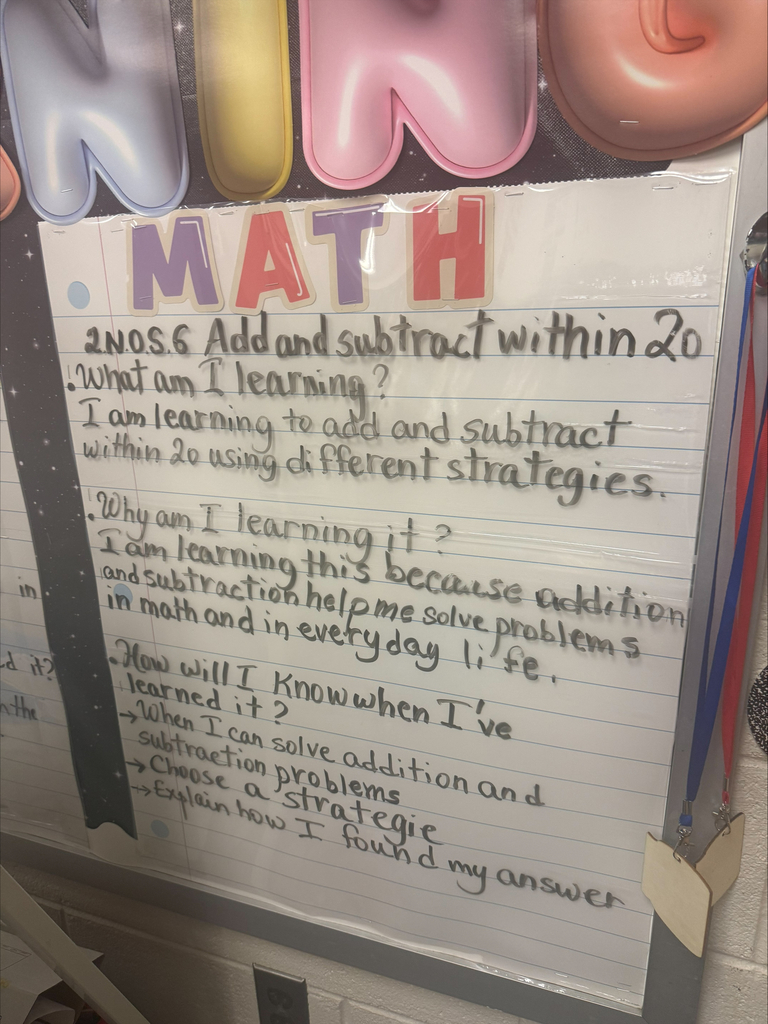 NING
MATH
2N.O.S.6 Add and subtract within 20
.What am I learning?
I am learning to add and subtract
within 20 using different strategies.
.Why am I learning it?
I am learning this because addition
and subtraction help me solve problems
in math and in everyday life.
.How will I know when I've
learned it?
→When I can solve addition and
subtraction problems
→Choose a strategie
→Explain how I found my answer
in
d it?
n the